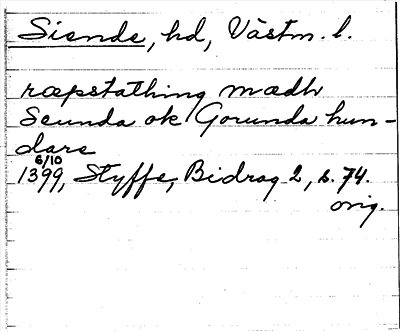 Siende, hd, Västm. l.
ræpstathing mædh
Seunda ok Gorunda hun-
dare
6/10
1399, Styffe, Bidrag 2, s. 74.
orig.